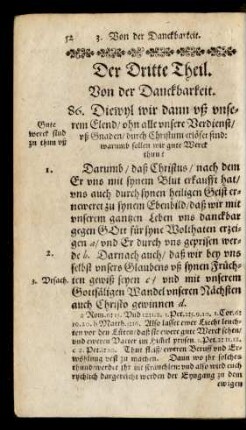 52 3. Von der Danckbarkeit.
Der Dritte Theil.
Von der Danckbarkeit.
86. Diewyl wir dann vß vnse-
rem Elend/ ohn alle vnsere Verdienst/
vß Gnaden/ durch Christum erlößet sind:
warumb sollen wir gute Werck
thun?
Gute
werck sind
zu thun vß
1. Darumb/ daß Christus/ nach dem
Er vns mit synem Blut erkaufft hat/
vns auch durch synen heiligen Geist er-
neweret zu synem Ebenbild/ daß wir mit
vnserem gantzen Leben vns danckbar
gegen GOtt für syne Wolthaten erzei-
gen a/ vnd Er durch vns geprisen wer-
2. de b. Darnach auch/ daß wir bey vns
selbst vnsers Glaubens vß synen Früch-
3. Vrsach. ten gewiß seyen c/ vnd mit vnserem
Gottsäligen Wandel vnseren Nächsten
auch Christo gewinnen d.
10.20. b Matth. 5.16. Also lasset ewer Liecht leuch-
ten vor den Lüten/ daß sie ewere gute Werck sehen/
vnd eweren Vatter im Himel prysen.
wöhlung vest zu machen. Dann wo jhr solches
rychlich dargereicht werden der Eyngang zu dem
ewigen